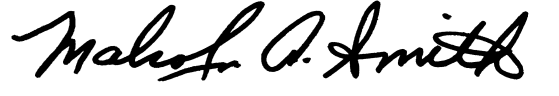 Malcolm A. Smith